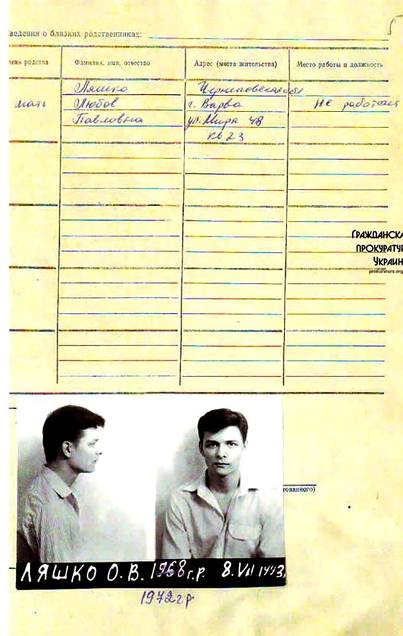 ведения о близких родственниках:
ень родства Фамилия, имя, отчество Адрес (места жительства) Место работы и должность
Ляшко Черниговская обл
мать Любов г. Варва Не работает
Павловна ул. Мира 48
кв 23
ГРАЖДАНСКА
ПРОКУРАТУР
УКРАИН
тованного)
ЛЯШКО О.В. 1968 г.р. 8.VII 1993
1972 г.р